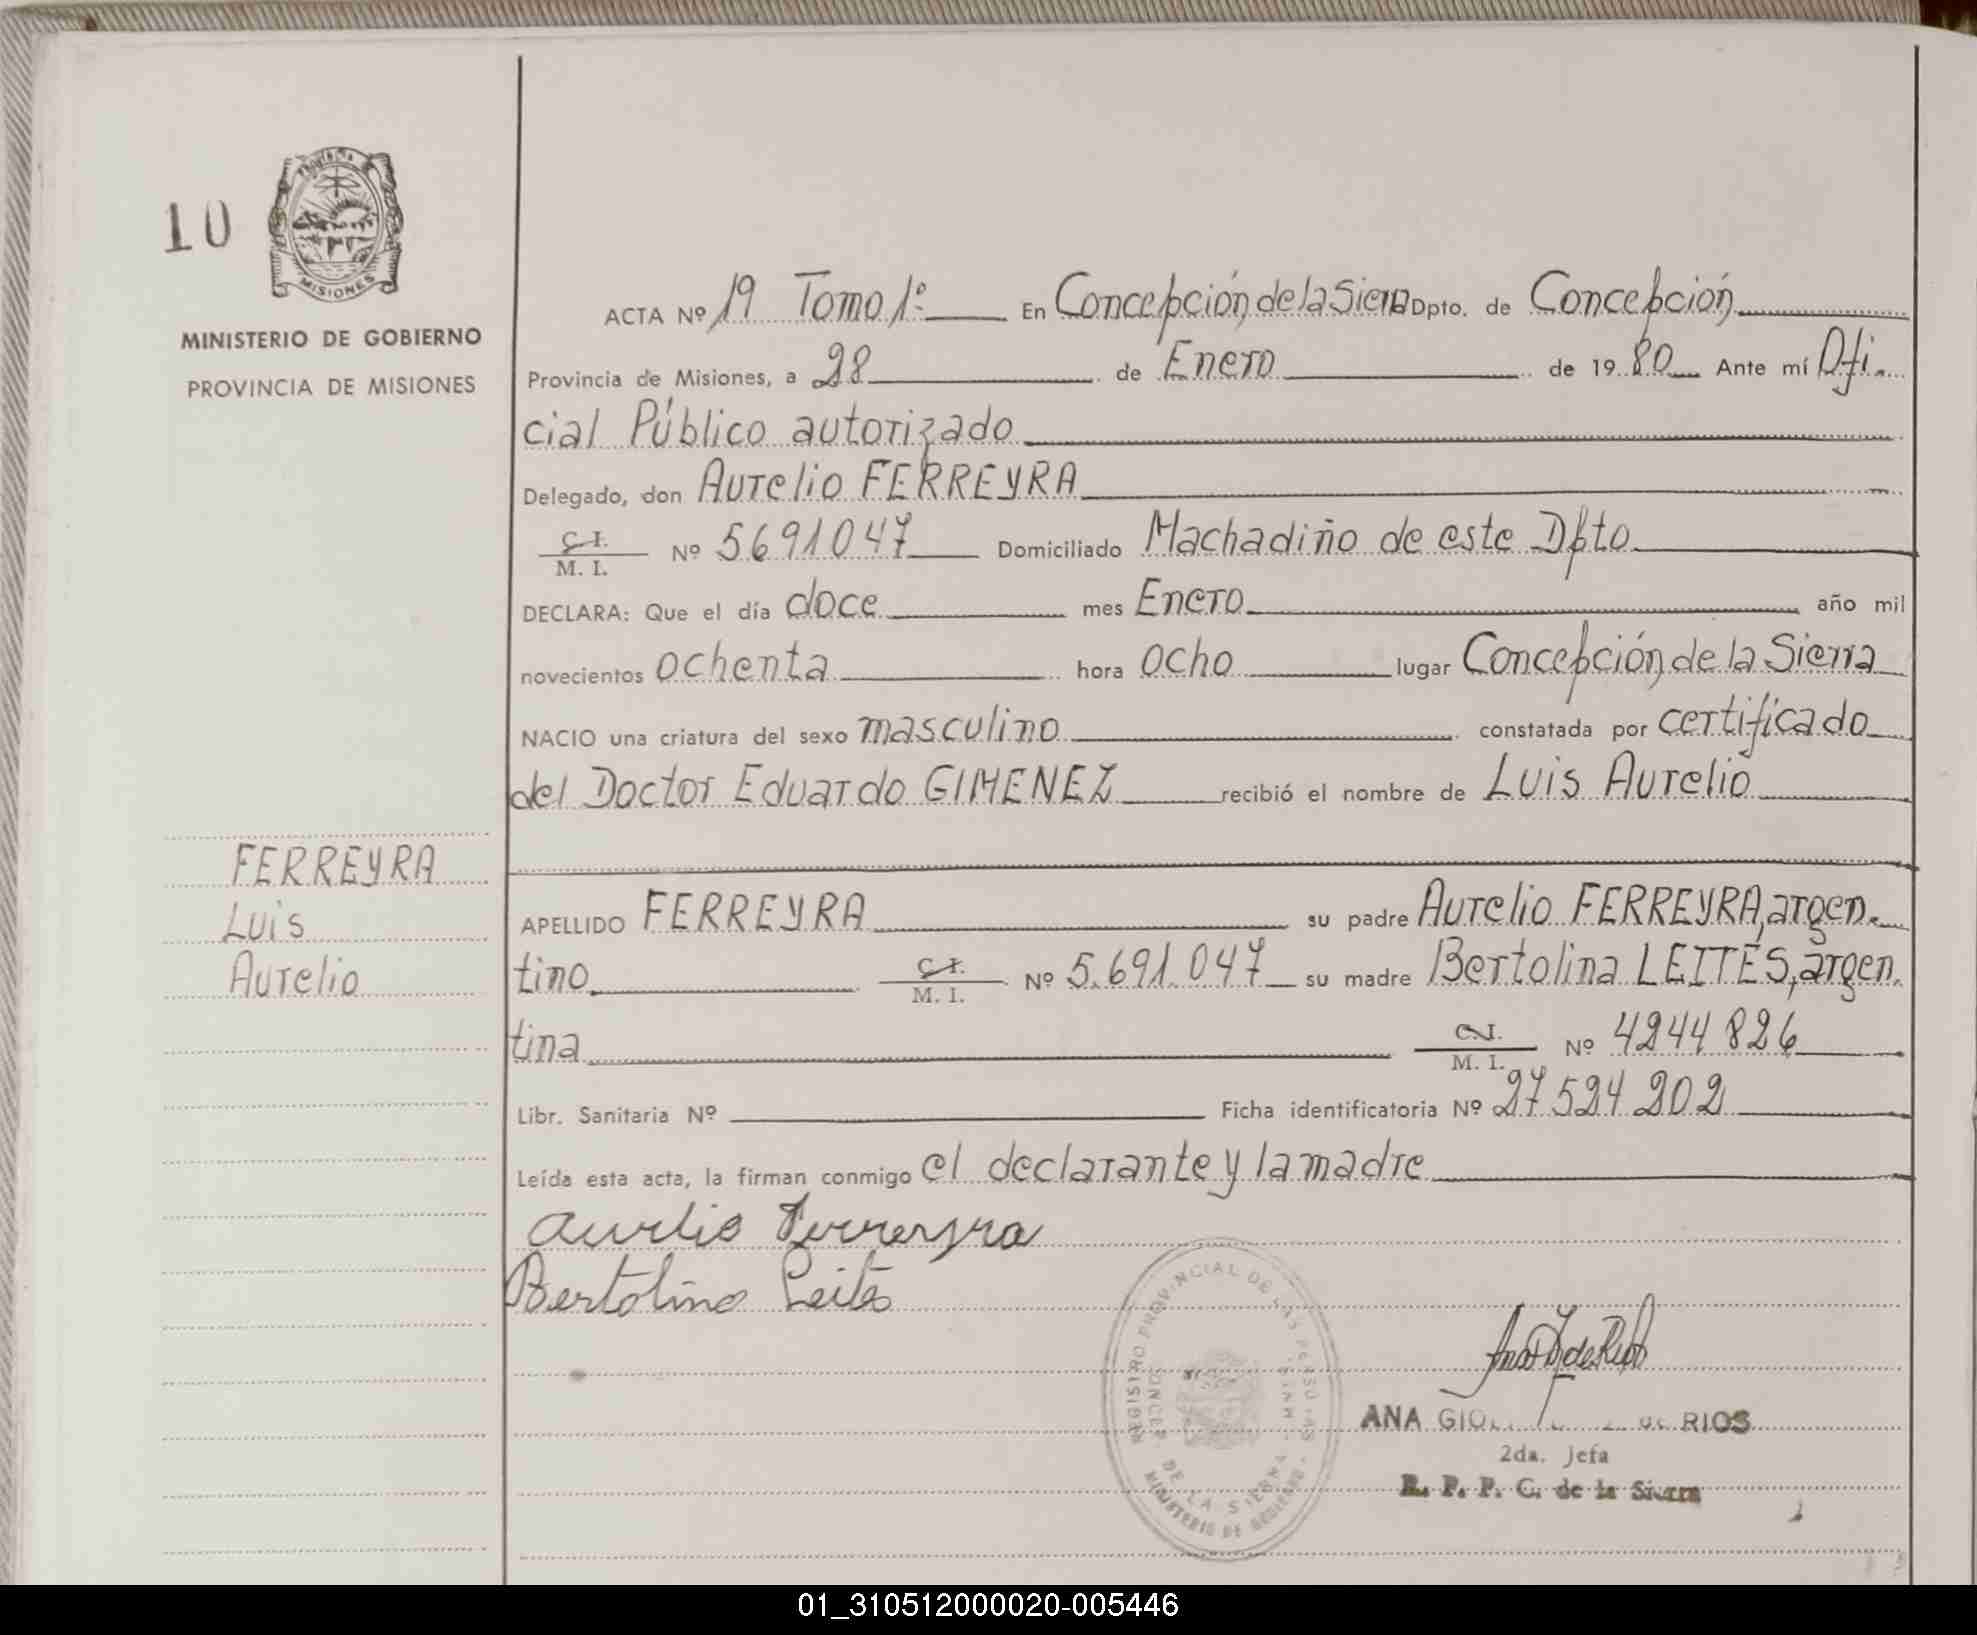 10
MISIONES
MINISTERIO DE GOBIERNO
PROVINCIA DE MISIONES
ACTA Nº 19 Tomo 1º En Concepción de la Sierra Dpto. de Concepción
Provincia de Misiones, a 28 de Enero de 1980 Ante mí Ofi-
cial Público autorizado
Delegado, don Aurelio FERREYRA
C. I.
M. I. Nº 5691047 Domiciliado Machadiño de este Dpto
DECLARA: Que el día doce mes Enero año mil
novecientos ochenta hora ocho lugar Concepción de la Sierra
NACIO una criatura del sexo masculino constatada por certificado
del Doctor Eduardo GIMENEZ recibió el nombre de Luis Aurelio
FERREYRA
Luis
Aurelio
APELLIDO FERREYRA su padre Aurelio FERREYRA, argen-
tino C. I.
M. I. Nº 5.691.047 su madre Bertolina LEITES, argen-
tina C. I.
M. I. Nº 4244826
Libr. Sanitaria Nº Ficha identificatoria Nº 27524202
Leída esta acta, la firman conmigo el declarante y la madre
Aurelio Ferreyra
Bertolina Leites
REGISTRO PROVINCIAL DE LAS PERSONAS
MINISTERIO DE GOBIERNO
DE LA SIERRA
ANA RIOS
2da. Jefa
R. P. P. C. de la Sierra
01_310512000020-005446